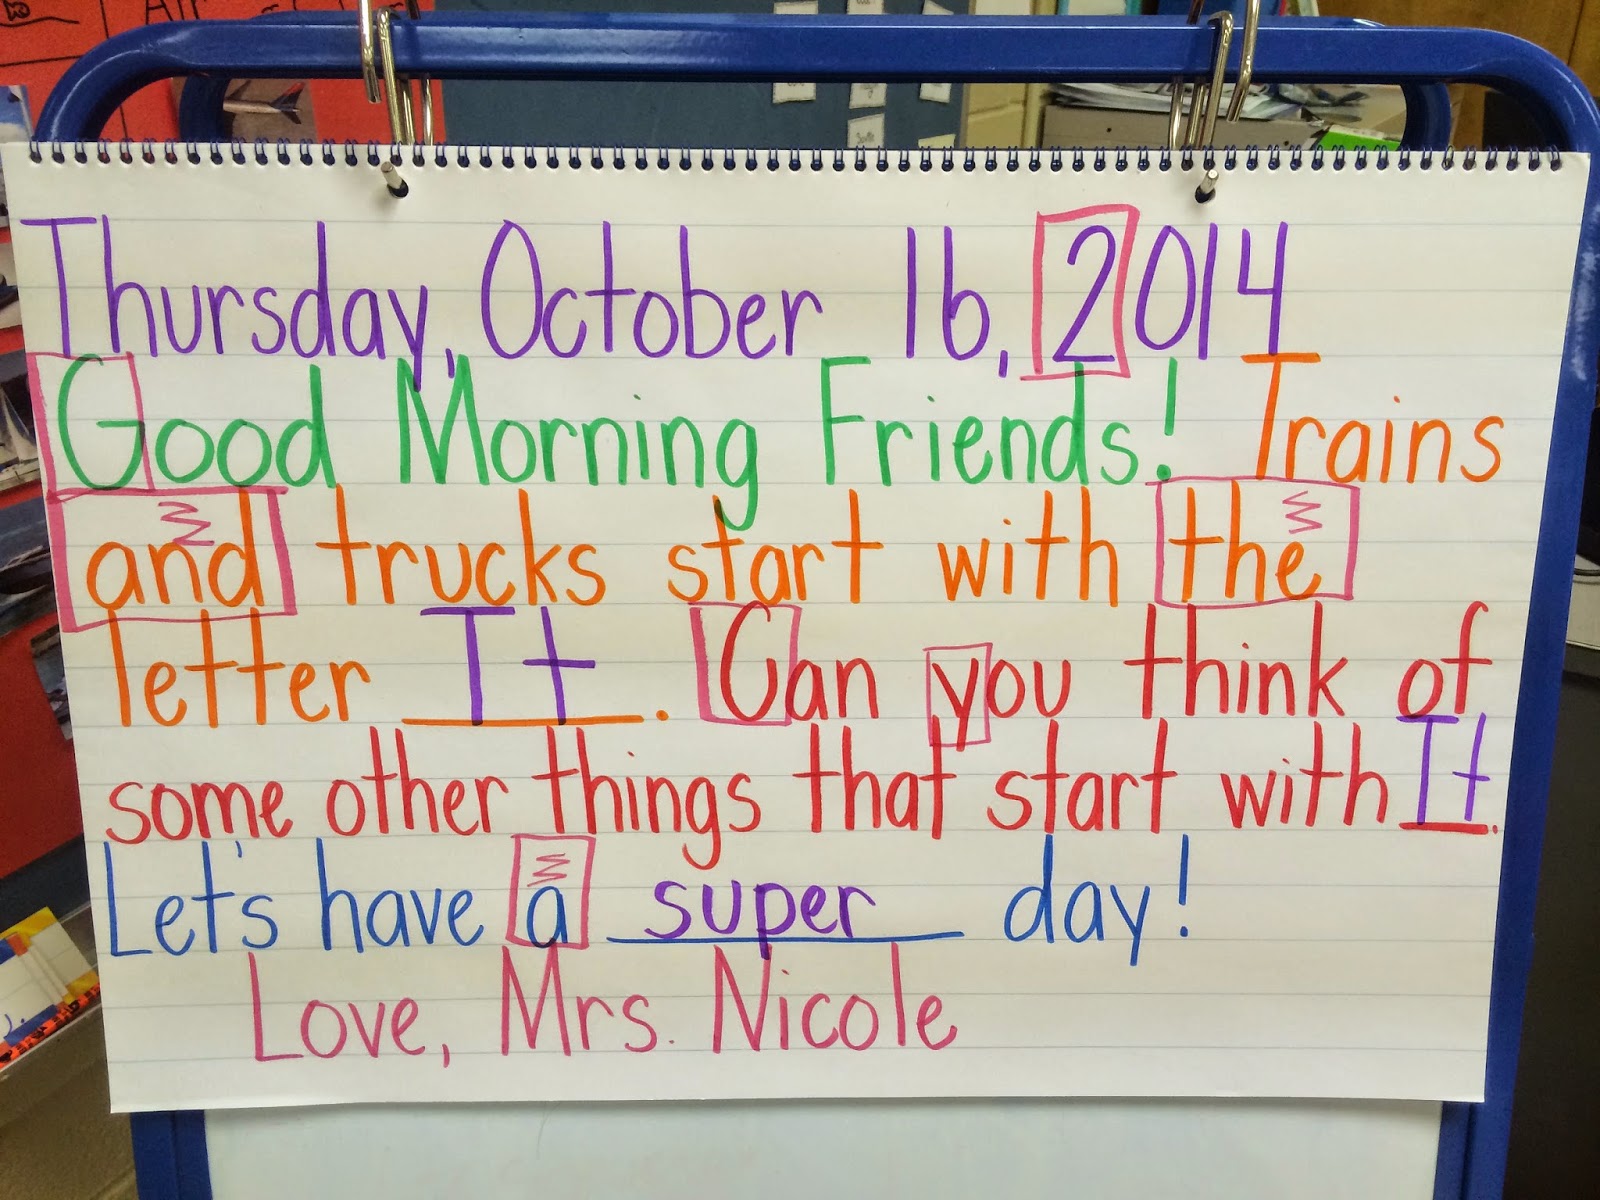 Air
Thursday, October 16, 2014
Good Morning Friends! Trains
and trucks start with the
letter Tt. Can you think of
some other things that start with Tt.
Let's have a super day!
Love, Mrs. Nicole